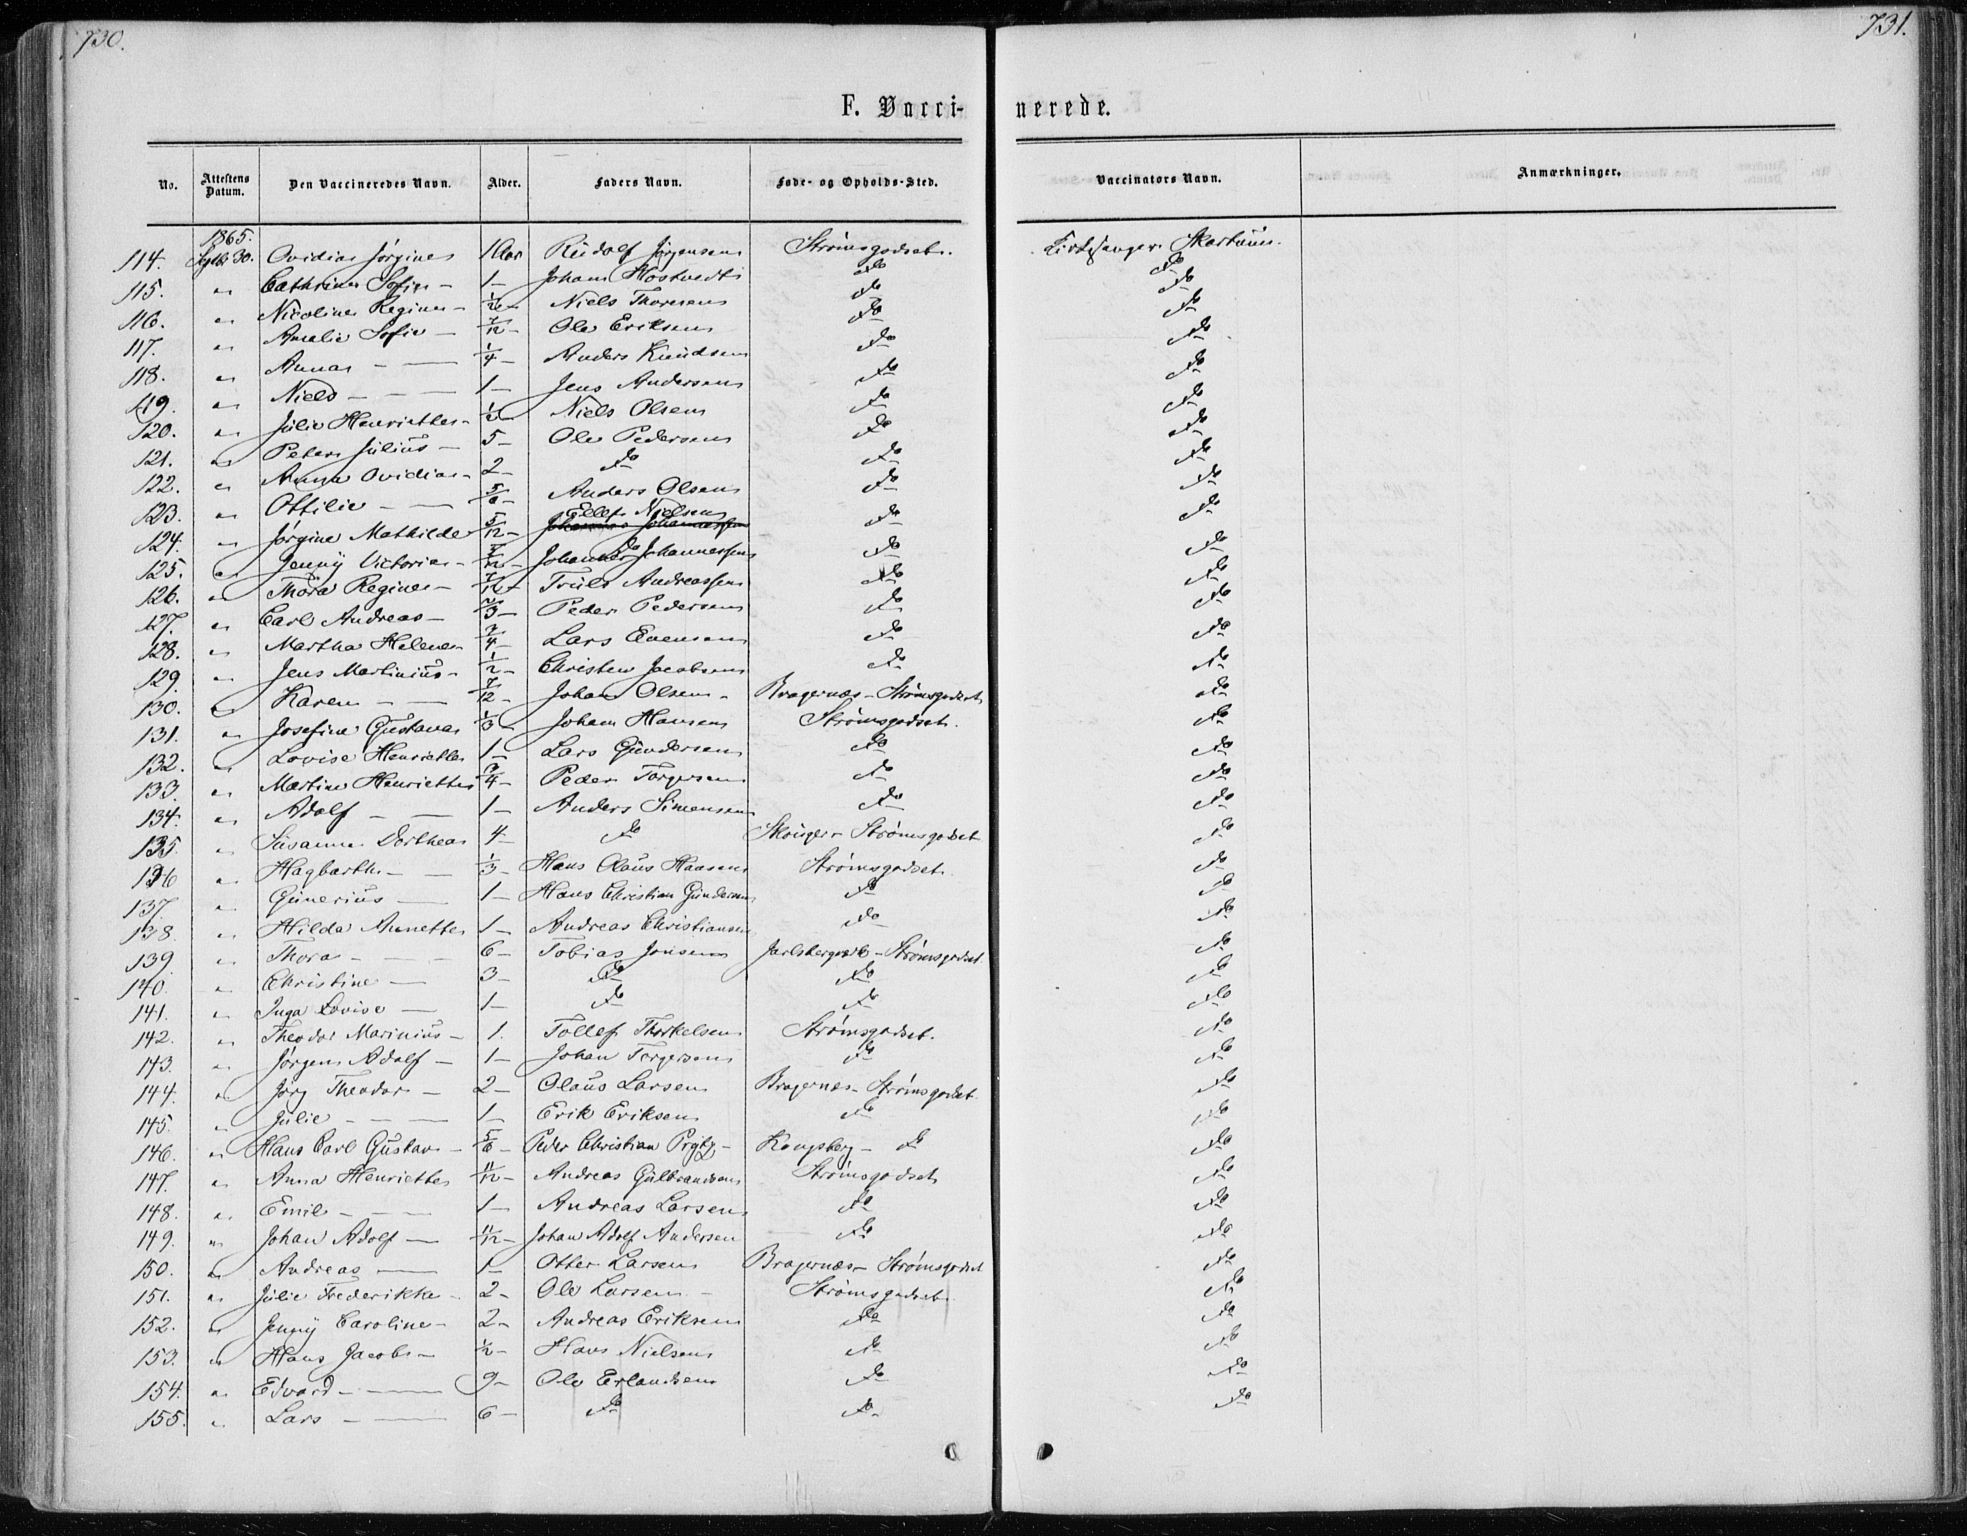 730.
731.
F. Vacci-
nerede.
No. Attestens Datum. Den Vaccineredes Navn. Alder. Faders Navn. Føde- og Opholds-Sted. Vaccinators Navn. Anmærkninger.
1865.
114. Septbr 30. Ovidia Jørgine 1 Aar Rudolf Jørgensen Strømsgodset. Kirkesanger Skartum.
115. " Cathrine Sofie - 1 - Johan Hostvedt do do
116. " Nicoline Regine - 1/2 - Niels Thoresen do do
117. " Amalie Sofie - 7/12 - Ole Eriksen do do
118. " Anna - 1/4 - Anders Knudsen do do
119. " Niels - 1 - Jens Andersen do do
120. " Julie Henriette - 1/2 Niels Olsen do do
121. " Peter Julius - 5 - Ole Pedersen do do
122. " Anna Ovidia - 2 - do do do
123. " Ottilie - 5/6 - Anders Olsen do do
124. " Jørgine Mathilde 5/12 - Ellef Nielsen do do
125. " Jenny Victoria - Johannes Johannessen do do
126. " Thora Regine - 7/12 - Truls Andreassen do do
127. " Carl Andreas - 2/3 - Peder Pedersen do do
128. " Martha Helene 3/4 - Lars Evensen do do
129. " Jens Martinius - 1/2 - Christen Jacobsen do do
130. " Karen - 7/12 - Johan Olsen - Bragernæs - Strømsgodset do
131. " Josefine Gustava 1/3 - Johan Hansen Strømsgodset. do
132. " Lovise Henriette 1 - Lars Gundersen do do
133. " Martine Henriette 3/4 - Peder Torgersen do do
134. " Adolf - 1 - Anders Simensen do do
135. " Susanne Dorthea 4 - do Skouger - Strømsgodset do
136 " Hagbarth - 1/3 - Hans Olaus Haasen Strømsgodset. do
137. " Gunerius - 1 - Hans Christian Gundersen do do
138. " Hilda Annette 1 - Andreas Christiansen do do
139. " Thora - 6 - Tobias Jonsen Jarlsbergværk - Strømsgodset. do
140. " Christine - 3 - do do do
141. " Inga Lovise - 1 - do do do
142. " Theodor Marinius - 1. Tollef Thorkelsen Strømsgodset. do
143. " Jørgen Adolf - 1 - Johan Torgersen do do
144. " Jørg Theodor - 2 - Olaus Larsen Bragernæs - Strømsgodset. do
145. " Julie - 1 - Erik Eriksen do do
146. " Hans Carl Gustav - 5/6 - Peder Christian Prytz - Kongsberg - do do
147. " Anna Henriette 11/12 - Andreas Gulbrandsen Strømsgodset do
148. " Emil - 1 - Andreas Larsen do do
149. " Johan Adolf - 11/12 - Johan Adolf Andersen do do
150. " Andreas - 1 - Otter Larsen Bragernæs - Strømsgodset do
151. " Julie Frederikke - 2 - Ole Larsen - Strømsgodset. do
152. " Jenny Caroline - 2 - Andreas Eriksen do do
153. " Hans Jacob - 1/2 - Hans Nielsen do do
154. " Edvard - 9 - Ole Erlandsen do do
155. " Lars - 6 - do do do